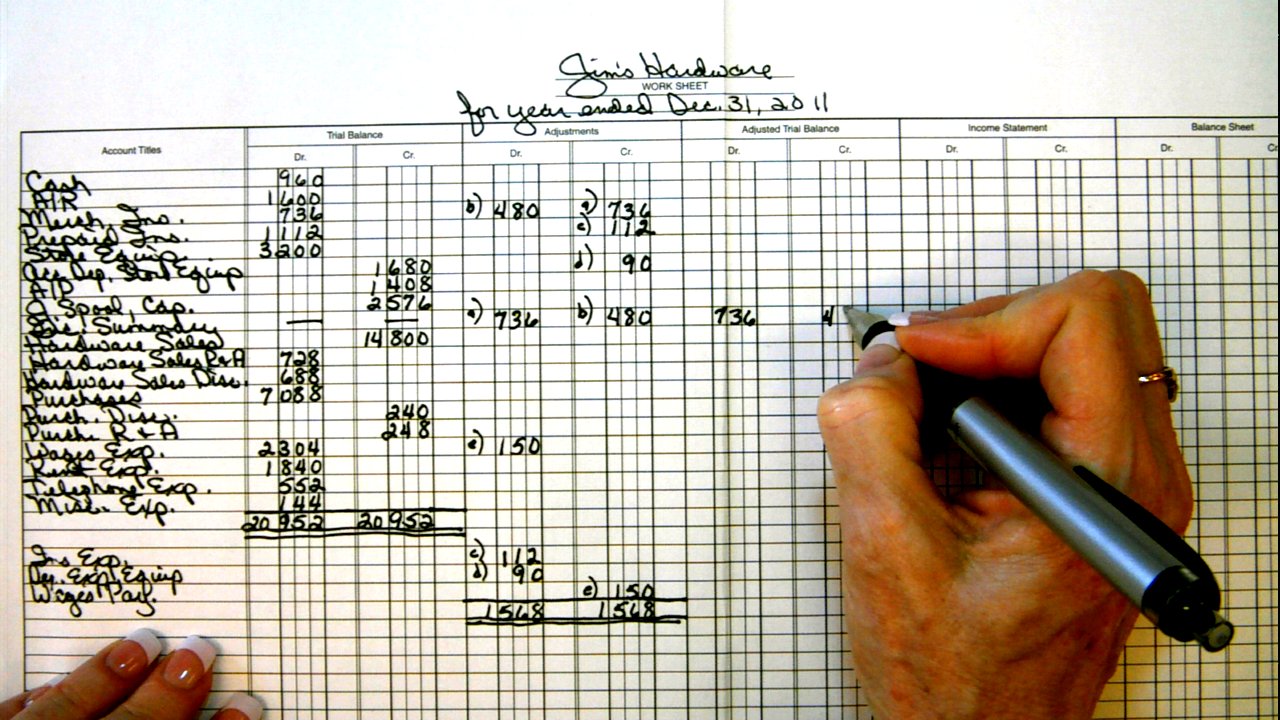 Jim's Hardware
WORK SHEET
for year ended Dec. 31, 2011
Account Titles Trial Balance Adjustments Adjusted Trial Balance Income Statement Balance Sheet
Dr. Cr. Dr. Cr. Dr. Cr. Dr. Cr. Dr. Cr
Cash 960
A/R 1600
Merch. Ins. 736 b) 480 a) 736
Prepaid Ins. 1112 c) 112
Store Equip. 3200
Acc. Dep. Store Equip 1680 d) 90
A/P 1408
J. Spool, Cap. 2576
Inc. Summary — — a) 736 b) 480 736 4
Hardware Sales 14800
Hardware Sales R&A 728
Hardware Sales Disc. 688
Purchases 7088
Purch. Disc. 240
Purch. R & A 248
Wages Exp. 2304 e) 150
Rent Exp. 1840
Telephone Exp. 552
Misc. Exp. 144
20952 20952
Ins Exp. c) 112
Dep. Exp. Equip d) 90
Wages Pay. e) 150
1568 1568